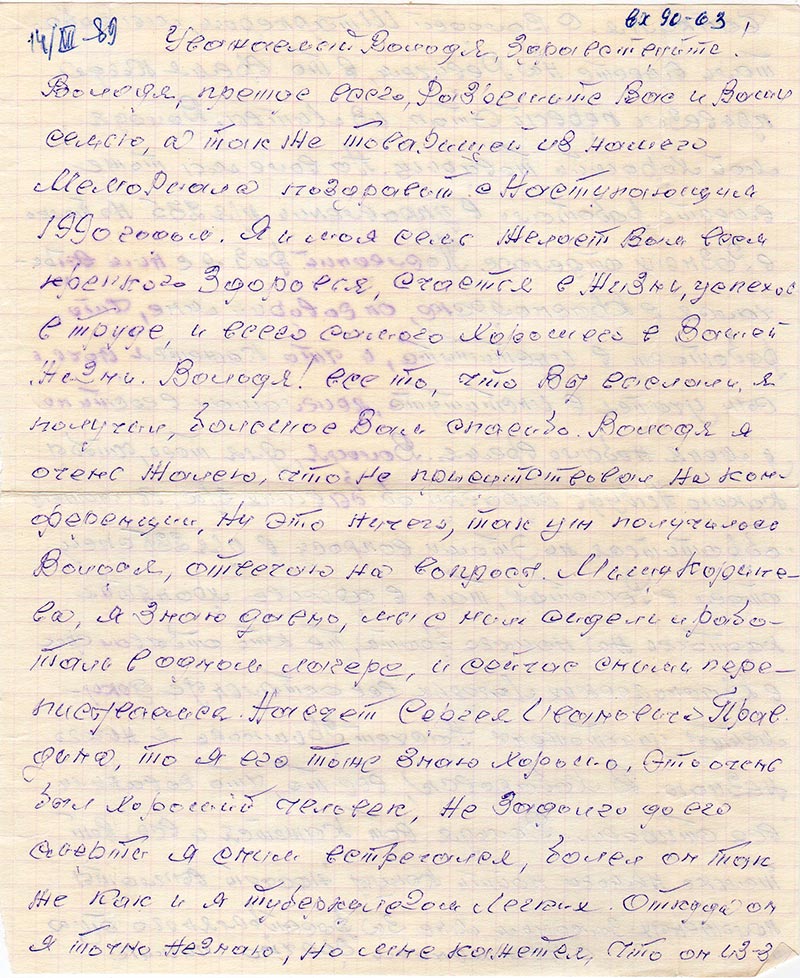 14/XII-89
вх 90-63
Уважаемый Володя, Здравствуйте!
Володя, прежде всего, Разрешите Вас и Вашу
семью, а так же товарищей из нашего
Мемориала поздравит с Наступающим
1990 годом. Я и моя семья желает Вам всем
крепкого Здоровья, счастья в жизни, успехов
в труде, и всего самого хорошего в Вашей
жизни. Володя! все то, что Вы выслали, я
получил, большое Вам спасибо. Володя я
очень жалею, что не присутствовал на кон-
ференции, ну это ничего, так уж получилось
Володя, отвечаю на вопросы. Мишу
ва, я знаю давно, мы с ним сидели и рабо-
тали в одном лагере, и сейчас с ними пере-
писываемся. Насчет Сергея Ивановича Прав-
дина, то я его тоже знаю хорошо, это очень
был хороший человек, не задолго до его
смерти я с ним встречался, болел он так
же как и я туберкулозом легких. Откуда он
я точно не знаю, но мне кажется, что он из-з